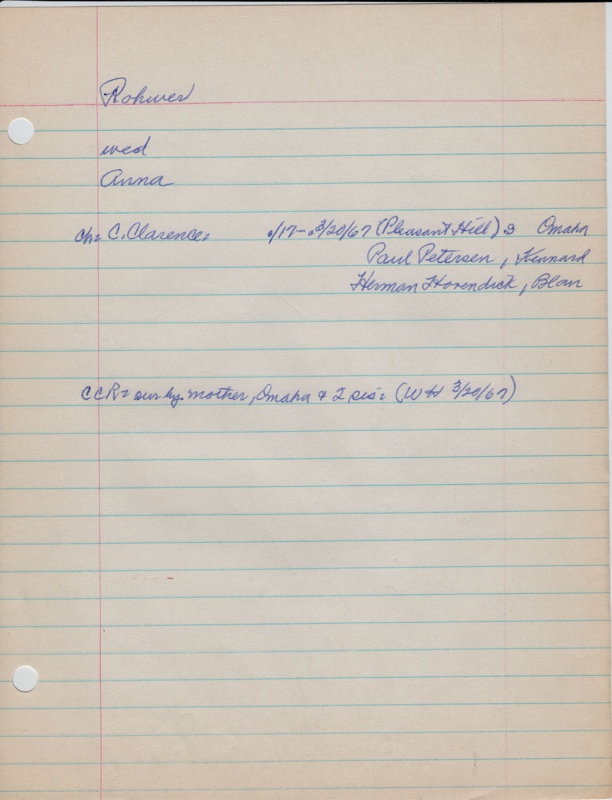 Rohwer
wed
Anna
ch: C. Clarence: /17-3/20/67 (Pleasant Hill) Omaha
Paul Petersen, Kennard
Herman Hovendick, Blair
CCR: sur by mother, Omaha & 2 sis: (WH 3/20/67)